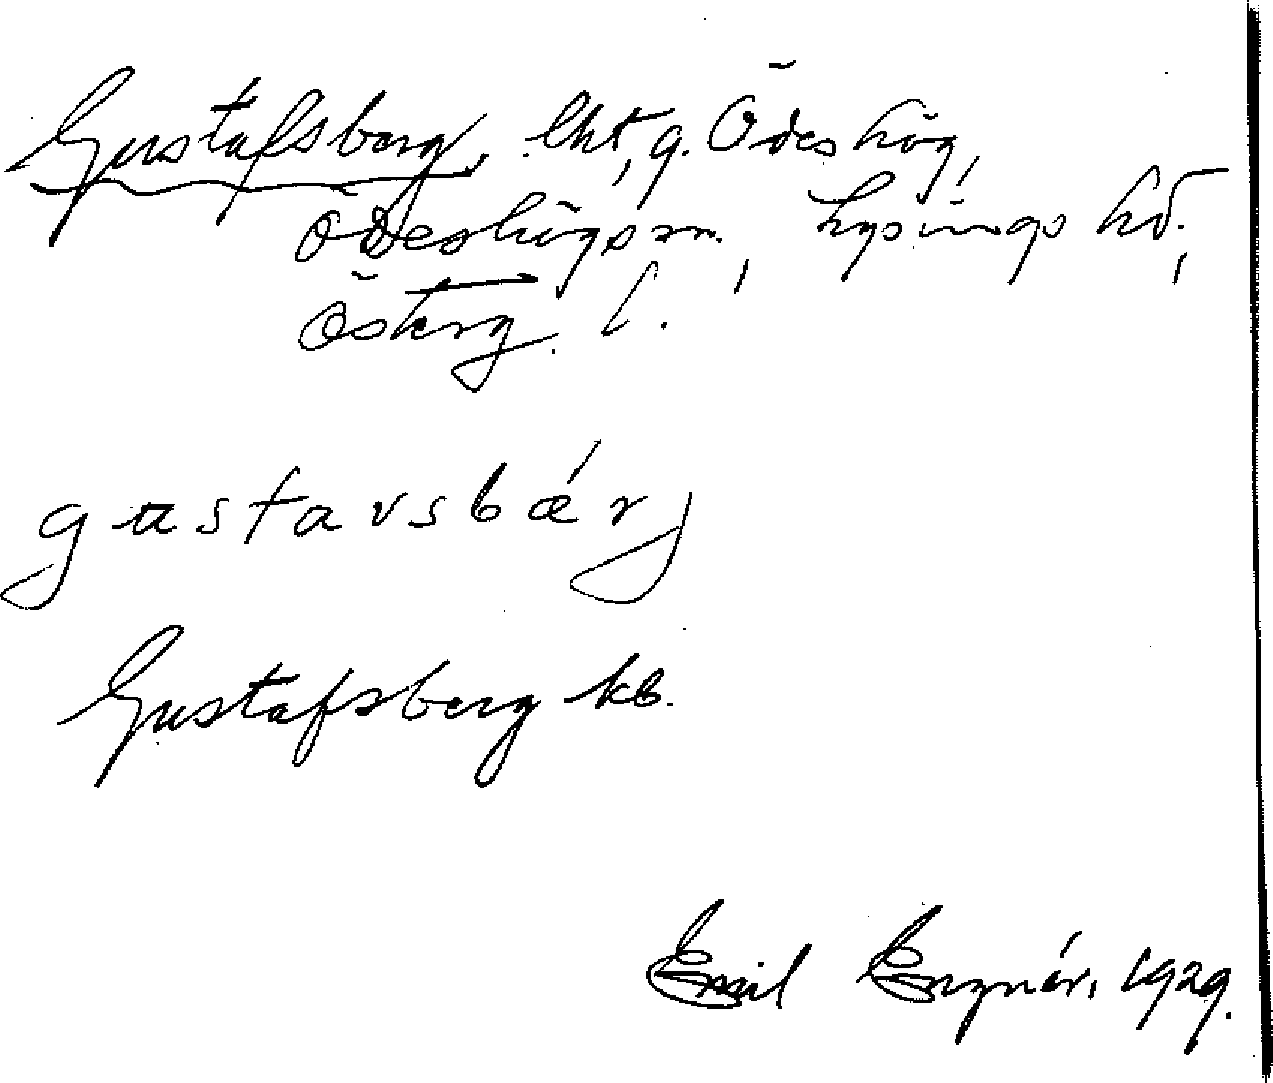 Gustafsberg, lht, g. Ödeshög,
Ödeshögs sn., Lysings hd.,
Österg. l.
gustavsbǽrj
Gustafsberg kb.
Emil Engnér, 1929.